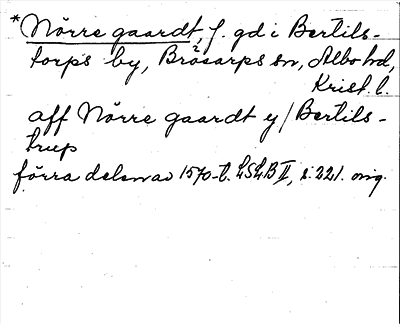 *Nörre gaardt, f. gd i Bertils-
torps by, Brösarps sn, Albo hd,
Krist. l.
aff Nörre gaardt y / Bertils-
trup
förra delen av 1570-t. LSLB II, s. 221. orig.